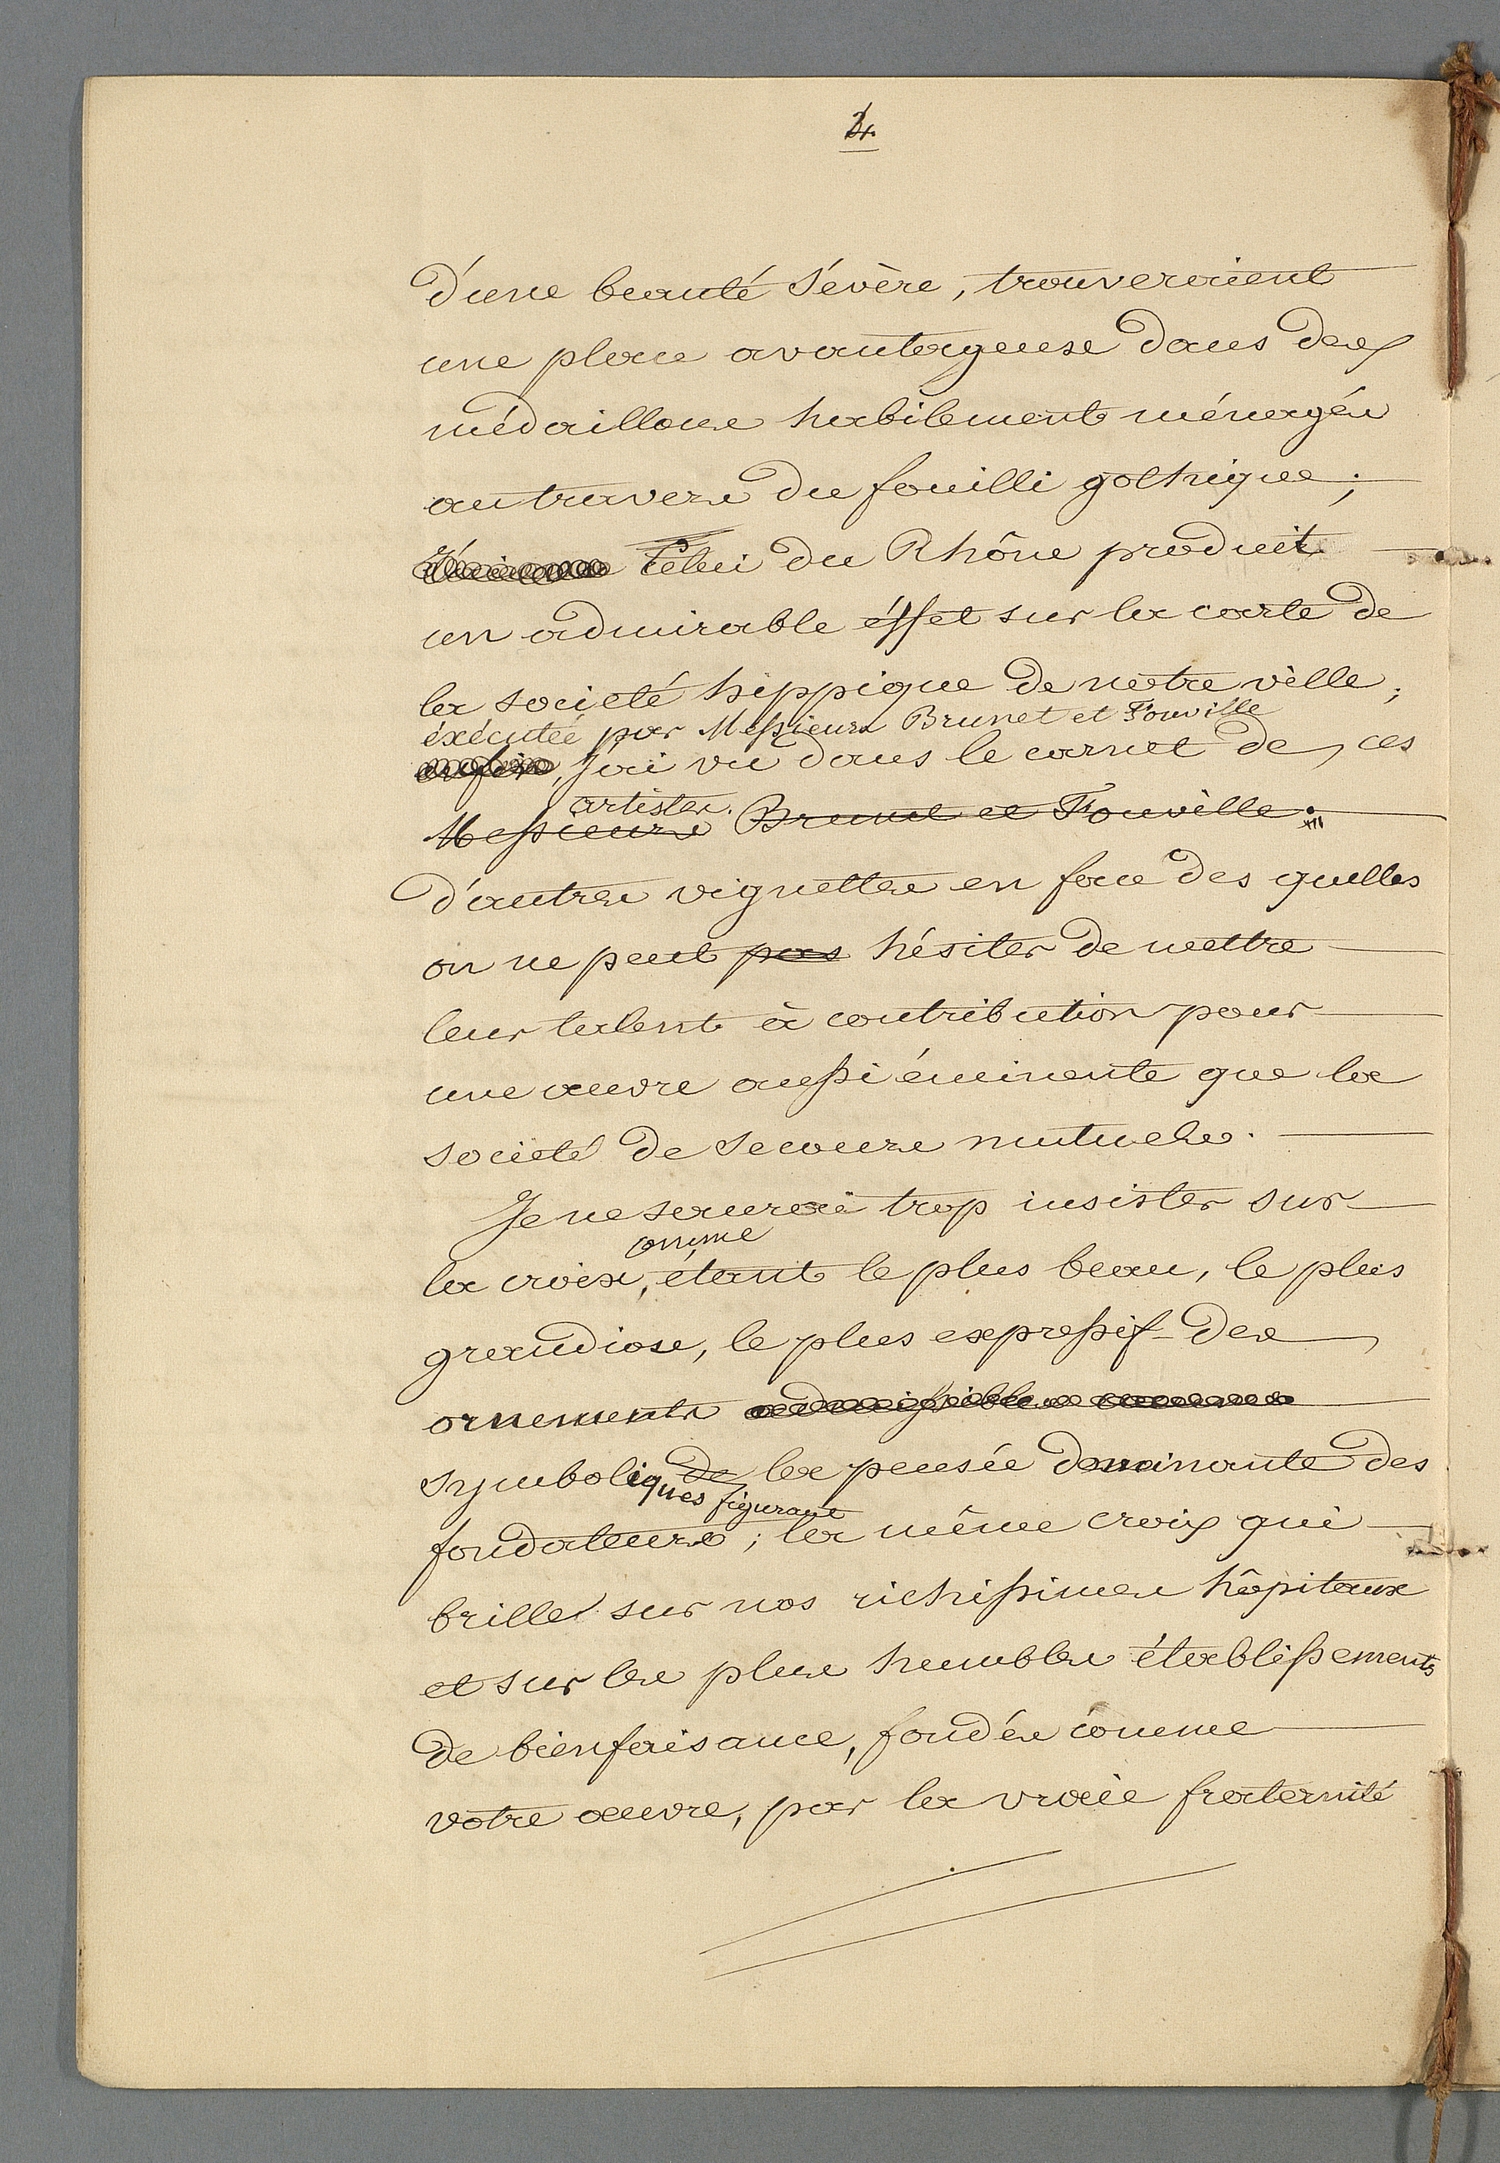 2.
d'une beauté sévère, trouveraient
une place avantageuse dans des
médaillons habilement ménagés
au travers du fouilli gothique;
Celui du Rhône produit
un admirable éffet sur la carte de
la société hippique de notre ville,
éxécutée par Messieurs Brunet et Fouville
enfin, J'ai vu dans le carnet de ces
artistes.
Messieurs Brunet et Fouville.
d'autres vignettes en face des quelles
on ne peut pas hésiter de mettre
leur talent à contribution pour
une œuvre aussi éminente que la
société de secours mutuels.
Je ne saurai trop insister sur
comme
la croix, étant le plus beau, le plus
grandiose, le plus expressif des
ornements admissibles comme
symboliques de la pensée dominante des
figurant
fondateurs; la même croix qui
brille sur nos richissimes hôpitaux
et sur les plus humbles établissements
de bienfaisance, fondés comme
votre œuvre, par la vraie fraternité